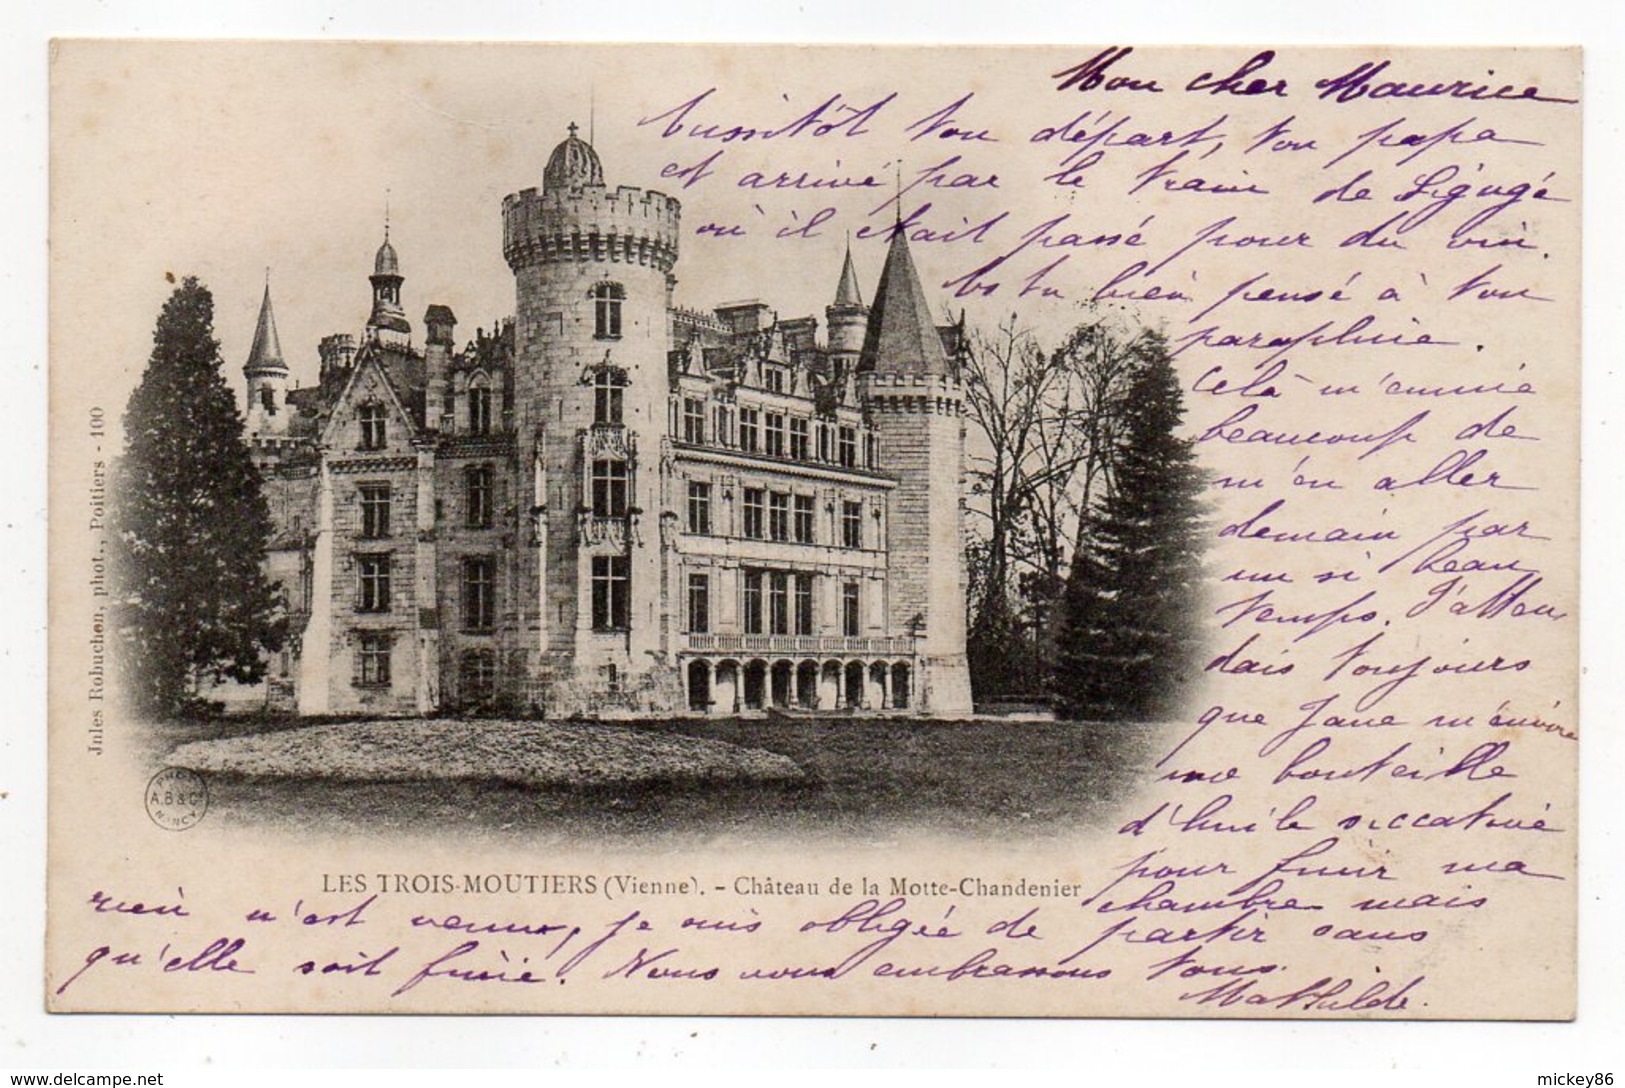 Mon cher Maurice
Aussitôt ton départ, ton papa
est arrivé par le train de Ligugé
où il était passé pour du vin.
As tu bien pensé à ton
paraphluie.
Celà m'ennuie
beaucoup de
m'en aller
demain par
un si beau
temps. J'atten
dais toujours
que Jane m'envoie
une bouteille
d'huile siccative
pour finir ma
chambre mais
rien n'est venu, je suis obligée de partir sans
qu'elle soit finie. Nous vous embrassons tous.
Mathilde.
Jules Robuchon, phot., Poitiers - 100
PHOT
A.B & Cie
NANCY
LES TROIS-MOUTIERS (Vienne). - Château de la Motte-Chandenier
www.delcampe.net
mickey86